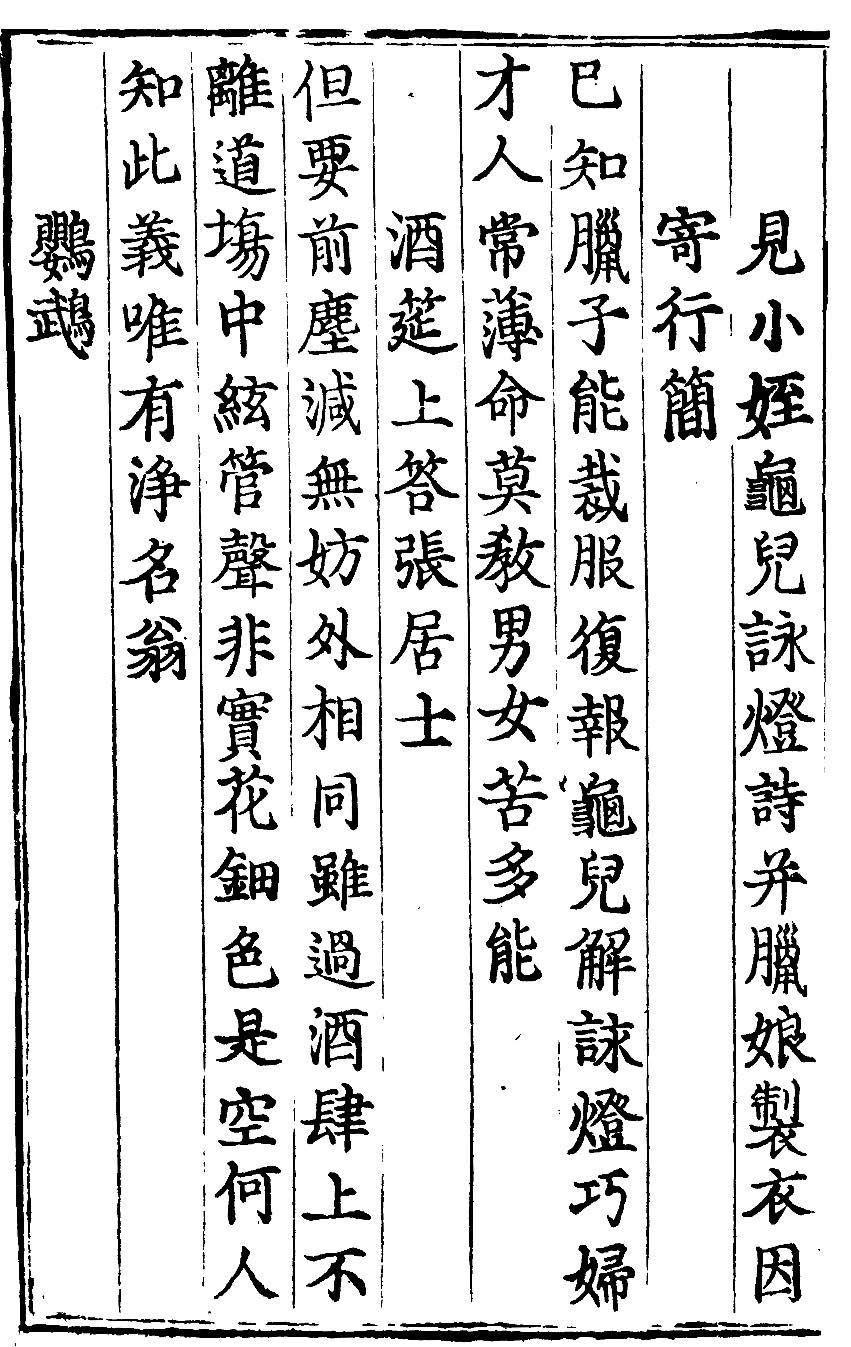 見小姪龜兒詠燈詩并臘娘製衣因
寄行簡
巳知臘子能裁服復報龜兒解詠燈巧婦
才人常薄命莫教男女苦多能
酒筵上答張居士
但要前塵減無妨外相同雖過酒肆上不
離道塲中絃管聲非實花鈿色是空何人
知此義唯有浄名翁
鸚鵡